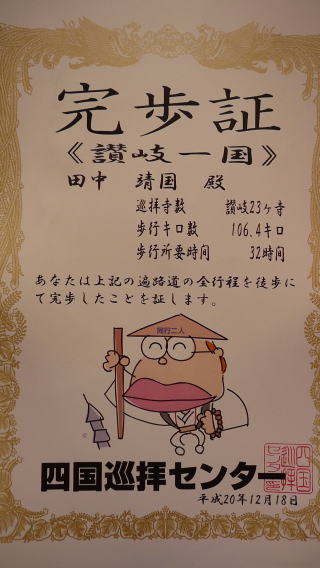 完歩証
《讃岐一国》
田中 靖国 殿
巡拝寺数 讃岐23ヶ寺
歩行キロ数 106.4キロ
歩行所要時間 32時間
あなたは上記の遍路道の全行程を徒歩に
て完歩したことを証します。
同行二人
四国巡拝センター
平成20年12月18日